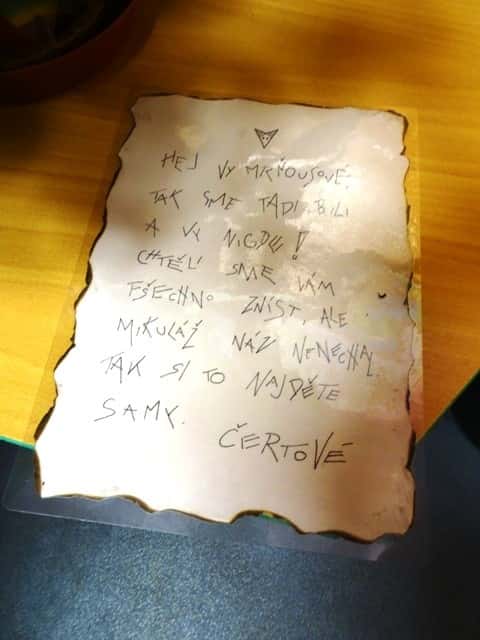 HEJ VY MRŇOUSOVÉ.
TAK SME TADI BILI
A VY NIGDE!
CHTĚLI SME VÁM
FŠECHNO ZNÍST, ALE
MIKULÁŽ NÁZ NENECHAL
TAK SI TO NAJDĚTE
SAMY.
ČERTOVÉ